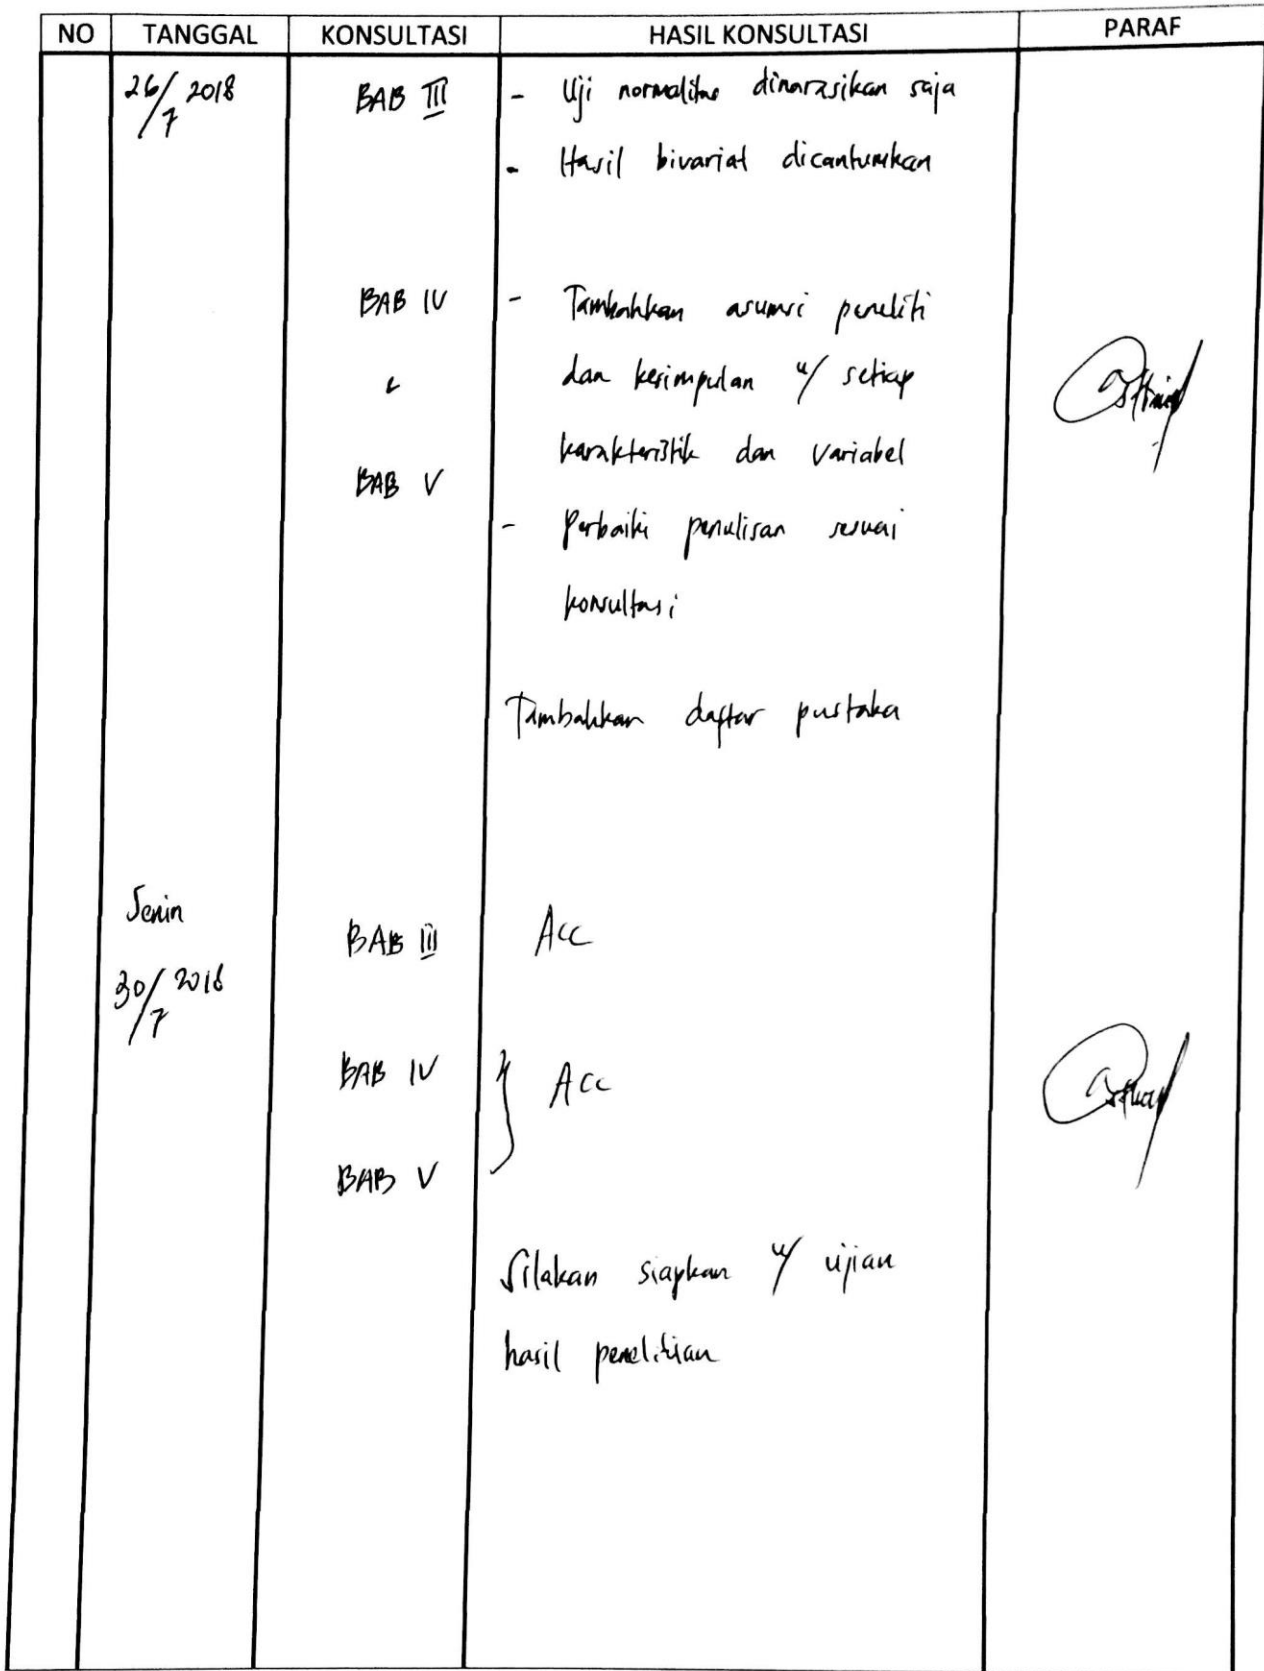 NO TANGGAL KONSULTASI HASIL KONSULTASI PARAF
26/7 2018 BAB III - Uji normalitas dinarasikan saja
- Hasil bivariat dicantumkan
BAB IV - Tambahkan asumsi peneliti
dan kesimpulan u/ setiap
karakteristik dan variabel
BAB V
- Perbaiki penulisan sesuai
konsultasi
Tambahkan daftar pustaka
Senin
BAB III Acc
30/7 2018
BAB IV } Acc
BAB V
Silakan siapkan u/ ujian
hasil penelitian